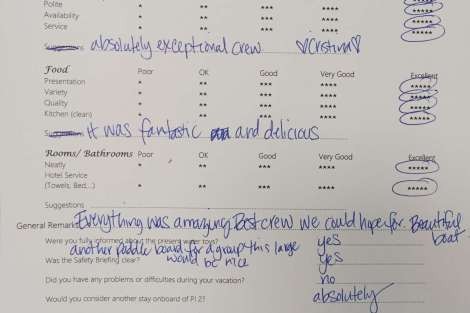 Polite * ** *** **** *****
Availability * ** *** **** *****
Service * ** *** **** *****
Suggestions absolutely exceptional crew ♡Cristina♡
Food Poor OK Good Very Good Excellent
Presentation * ** *** **** *****
Variety * ** *** **** *****
Quality * ** *** **** *****
Kitchen (clean) * ** *** **** *****
Suggestions it was fantastic and delicious
Rooms/ Bathrooms Poor OK Good Very Good Excellent
Neatly * ** *** **** *****
Hotel Service
(Towels, Bed...) * ** *** **** *****
Suggestions
General Remarks Everything was amazing. Best crew we could hope for. Beautiful
boat
Were you fully informed about the present water toys? yes
another paddle board for a group this large
would be nice
Was the Safety Briefing clear? yes
Did you have any problems or difficulties during your vacation? no
Would you consider another stay onboard of P.I.2? absolutely